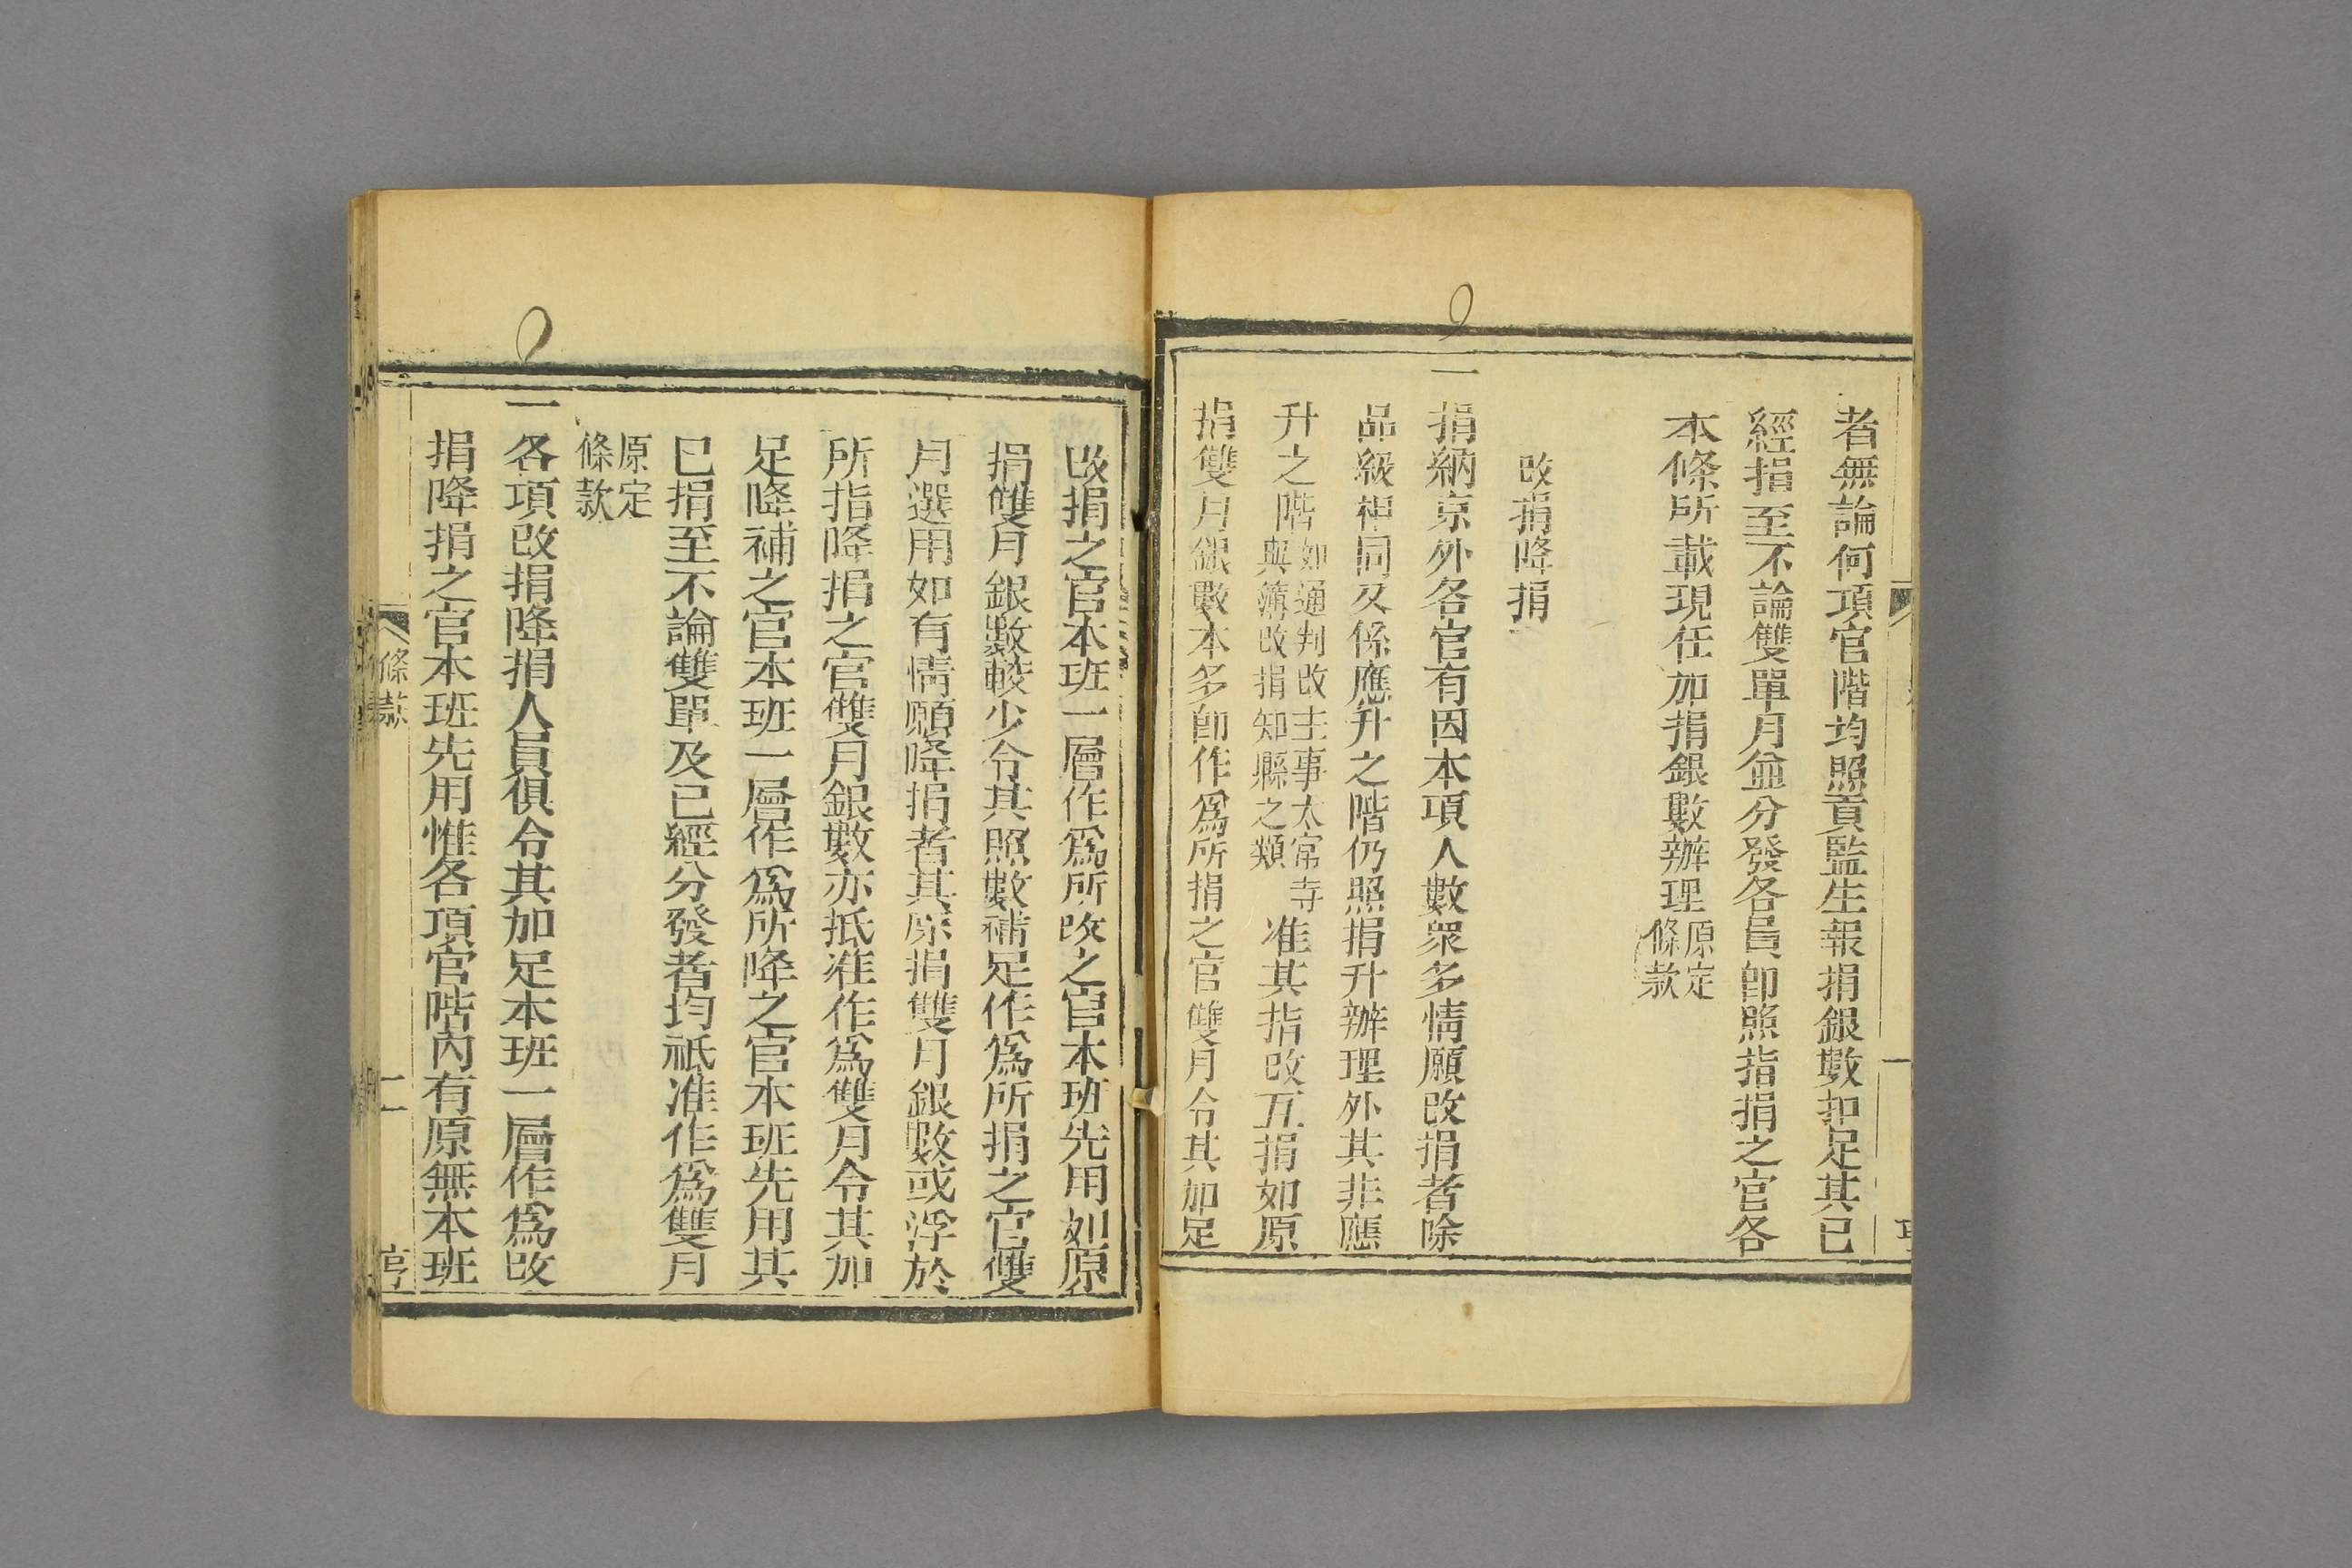 者無論何項官階均照貢監生報捐銀數扣足其已
經捐至不論雙單月並分發各員卽照指捐之官各
本條所載現任加捐銀數辦理原定
條款
改捐降捐
一捐納京外各官有因本項人數衆多情願改捐者除
品級相同又係應升之階仍照捐升辦理外其非應
升之階如通判改主事太常寺
典簿改捐知縣之類准其指改互捐如原
捐雙月銀數本多卽作爲所捐之官雙月令其加足
改捐之官本班一層作爲所改之官本班先用如原
捐雙月銀數較少令其照數補足作爲所捐之官雙
月選用如有情願降捐者其原捐雙月銀數或浮於
所指降捐之官雙月銀數亦抵准作爲雙月令其加
足降補之官本班一層作爲所降之官本班先用其
已捐至不論雙單及已經分發者均祇准作爲雙月
原定
條款
一各項改捐降捐人員俱令其加足本班一層作爲改
捐降捐之官本班先用惟各項官階內有原無本班
條款
二
亨